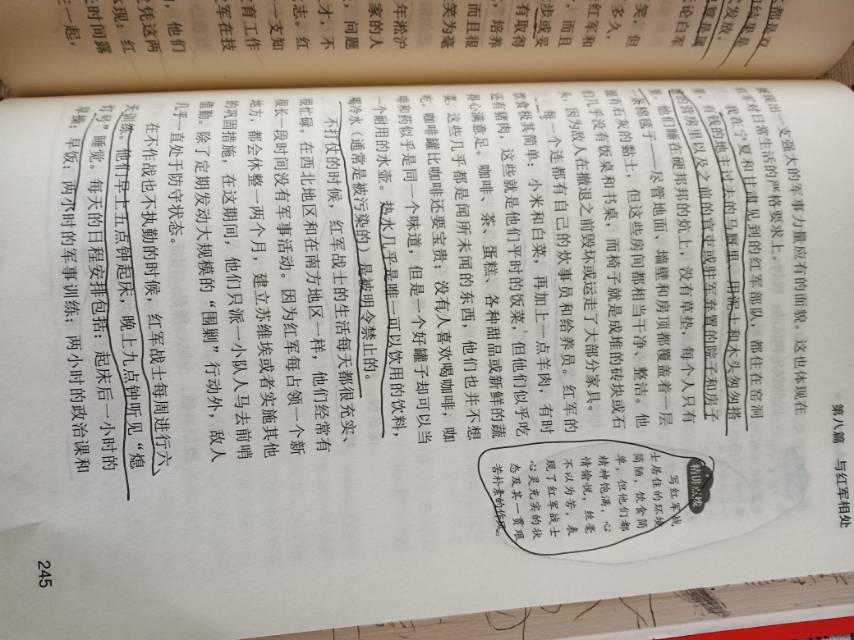 都是双
结果是
发放：
就是属
无论白军
笑。但
多久，
红军和
，而且
步或妥
有取得
，培养
而且很
笑为毫
年淞沪
家的人
，问题
才，不
志。红
一支知
育工作
军在技
，他们
凭这两
体现：红
长时间露
三一起，
第八篇 与红军相处
现出一支强大的军事力量应有的面貌。这也体现在
红军对日常生活的严格要求上。
我在宁夏和甘肃见到的红军部队，都住在窑洞
里、有钱的地主过去的马厩里、用泥土和木头匆匆搭
建的营房里以及之前的官吏或驻军弃置的院子和房子
里。他们睡在硬邦邦的炕上，没有草垫，每个人只有
一条棉毯子——尽管地面、墙壁和房顶都覆盖着一层
混有石灰的黏土，但这些房间都相当干净、整洁。他
们几乎没有饭桌和书桌，而椅子就是成堆的砖块或石
头，因为敌人在撤退之前毁坏或运走了大部分家具。
每一个连都有自己的炊事员和给养员。红军的
饮食极其简单：小米和白菜，再加上一点羊肉，有时
还有猪肉，这些就是他们平时的饭菜，但他们似乎吃
得心满意足。咖啡、茶、蛋糕、各种甜品或新鲜的蔬
菜，这些几乎都是闻所未闻的东西，他们也并不想
吃。咖啡罐比咖啡还要宝贵；没有人喜欢喝咖啡，咖
啡和药似乎是同一个味道，但是一个好罐子却可以当
一个耐用的水壶。热水几乎是唯一可以饮用的饮料，
喝冷水（通常是被污染的）是被明令禁止的。
不打仗的时候，红军战士的生活每天都很充实、
很忙碌。在西北地区和在南方地区一样，他们经常有
很长一段时间没有军事活动。因为红军每占领一个新
地方，都会休整一两个月，建立苏维埃或者实施其他
的巩固措施，在这期间，他们只派一小队人马去前哨
值勤。除了定期发动大规模的“围剿”行动外，敌人
几乎一直处于防守状态。
在不作战也不执勤的时候，红军战士每周进行六
天训练。他们早上五点钟起床，晚上九点钟听见“熄
灯号”睡觉。每天的日程安排包括：起床后一小时的
早操；早饭；两小时的军事训练；两小时的政治课和
精讲点拨
写红军战
士居住的环境
简陋，饮食简
单，但他们都
精神饱满，心
情愉悦，丝毫
不以为苦，表
现了红军战士
心灵充实的状
态及其一贯艰
苦朴素的作风。
245